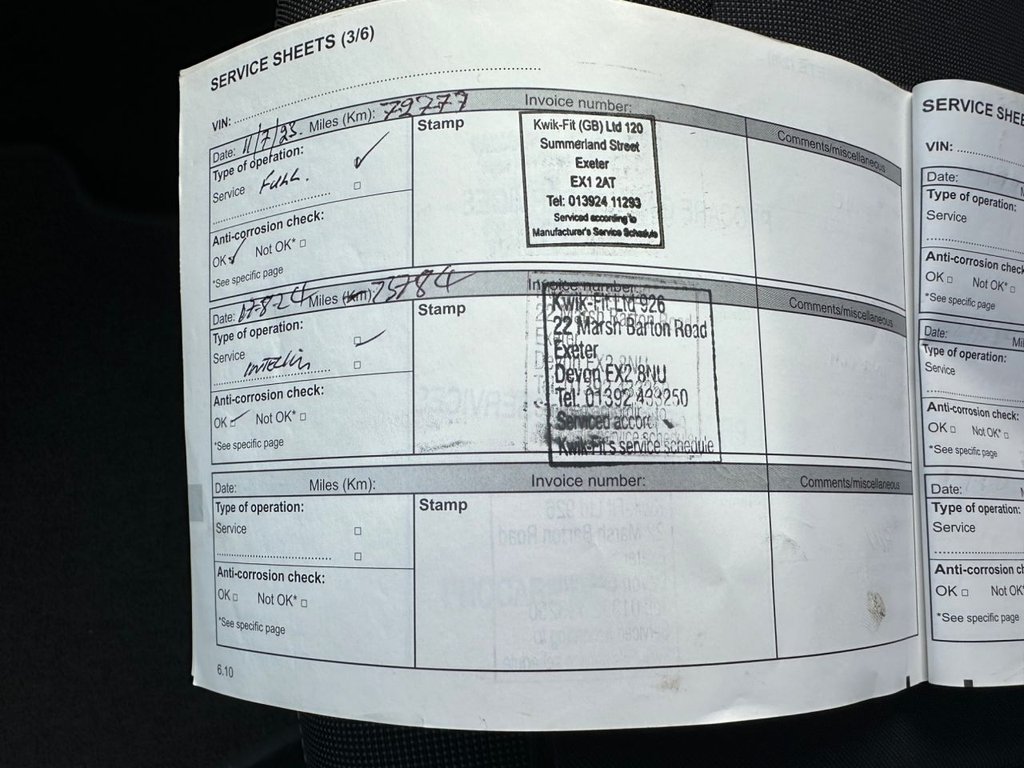 SERVICE SHEETS (3/6)
VIN:
Date: 11/7/23. Miles (Km): 72777 Invoice number:
Type of operation:
Service FULL.
Anti-corrosion check:
OK Not OK*
*See specific page
Stamp
Kwik-Fit (GB) Ltd 120
Summerland Street
Exeter
EX1 2AT
Tel: 013924 11293
Serviced according to
Manufacturer's Service Schedule
Comments/miscellaneous
Date: 17-8-24 Miles (Km) 75784 Invoice number:
Type of operation:
Service
Anti-corrosion check:
OK Not OK*
*See specific page
Stamp
Kwik-Fit Ltd 926
22 Marsh Barton Road
Exeter
Devon EX2 8NU
Tel: 01392 493250
Serviced accord
Kwik-Fit's service schedule
Comments/miscellaneous
Date: Miles (Km): Invoice number:
Type of operation:
Service
Anti-corrosion check:
OK Not OK*
*See specific page
Stamp
Comments/miscellaneous
6.10
SERVICE SHEE
VIN:
Date:
Type of operation:
Service
Anti-corrosion check
OK Not OK*
*See specific page
Date: Mi
Type of operation:
Service
Anti-corrosion check:
OK Not OK*
*See specific page
Date:
Type of operation:
Service
Anti-corrosion check:
OK Not OK*
*See specific page